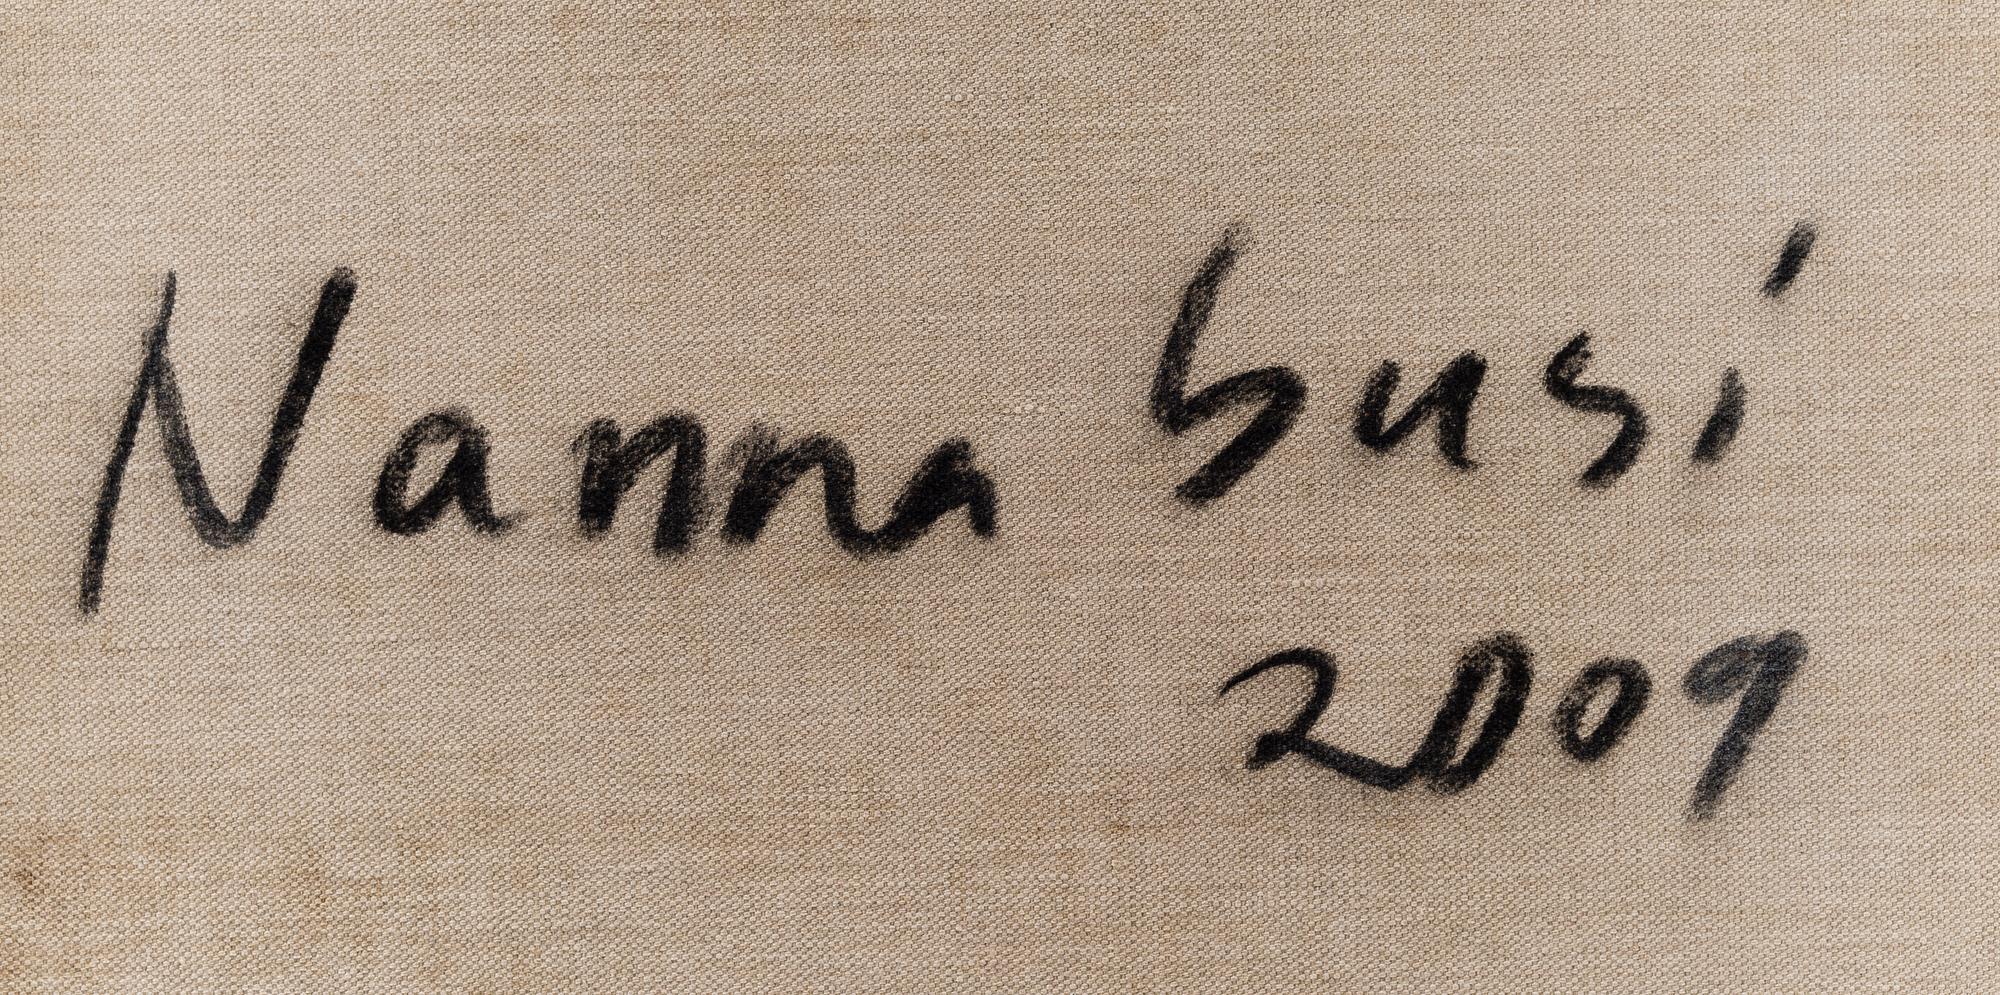 Nanna Susi
2009